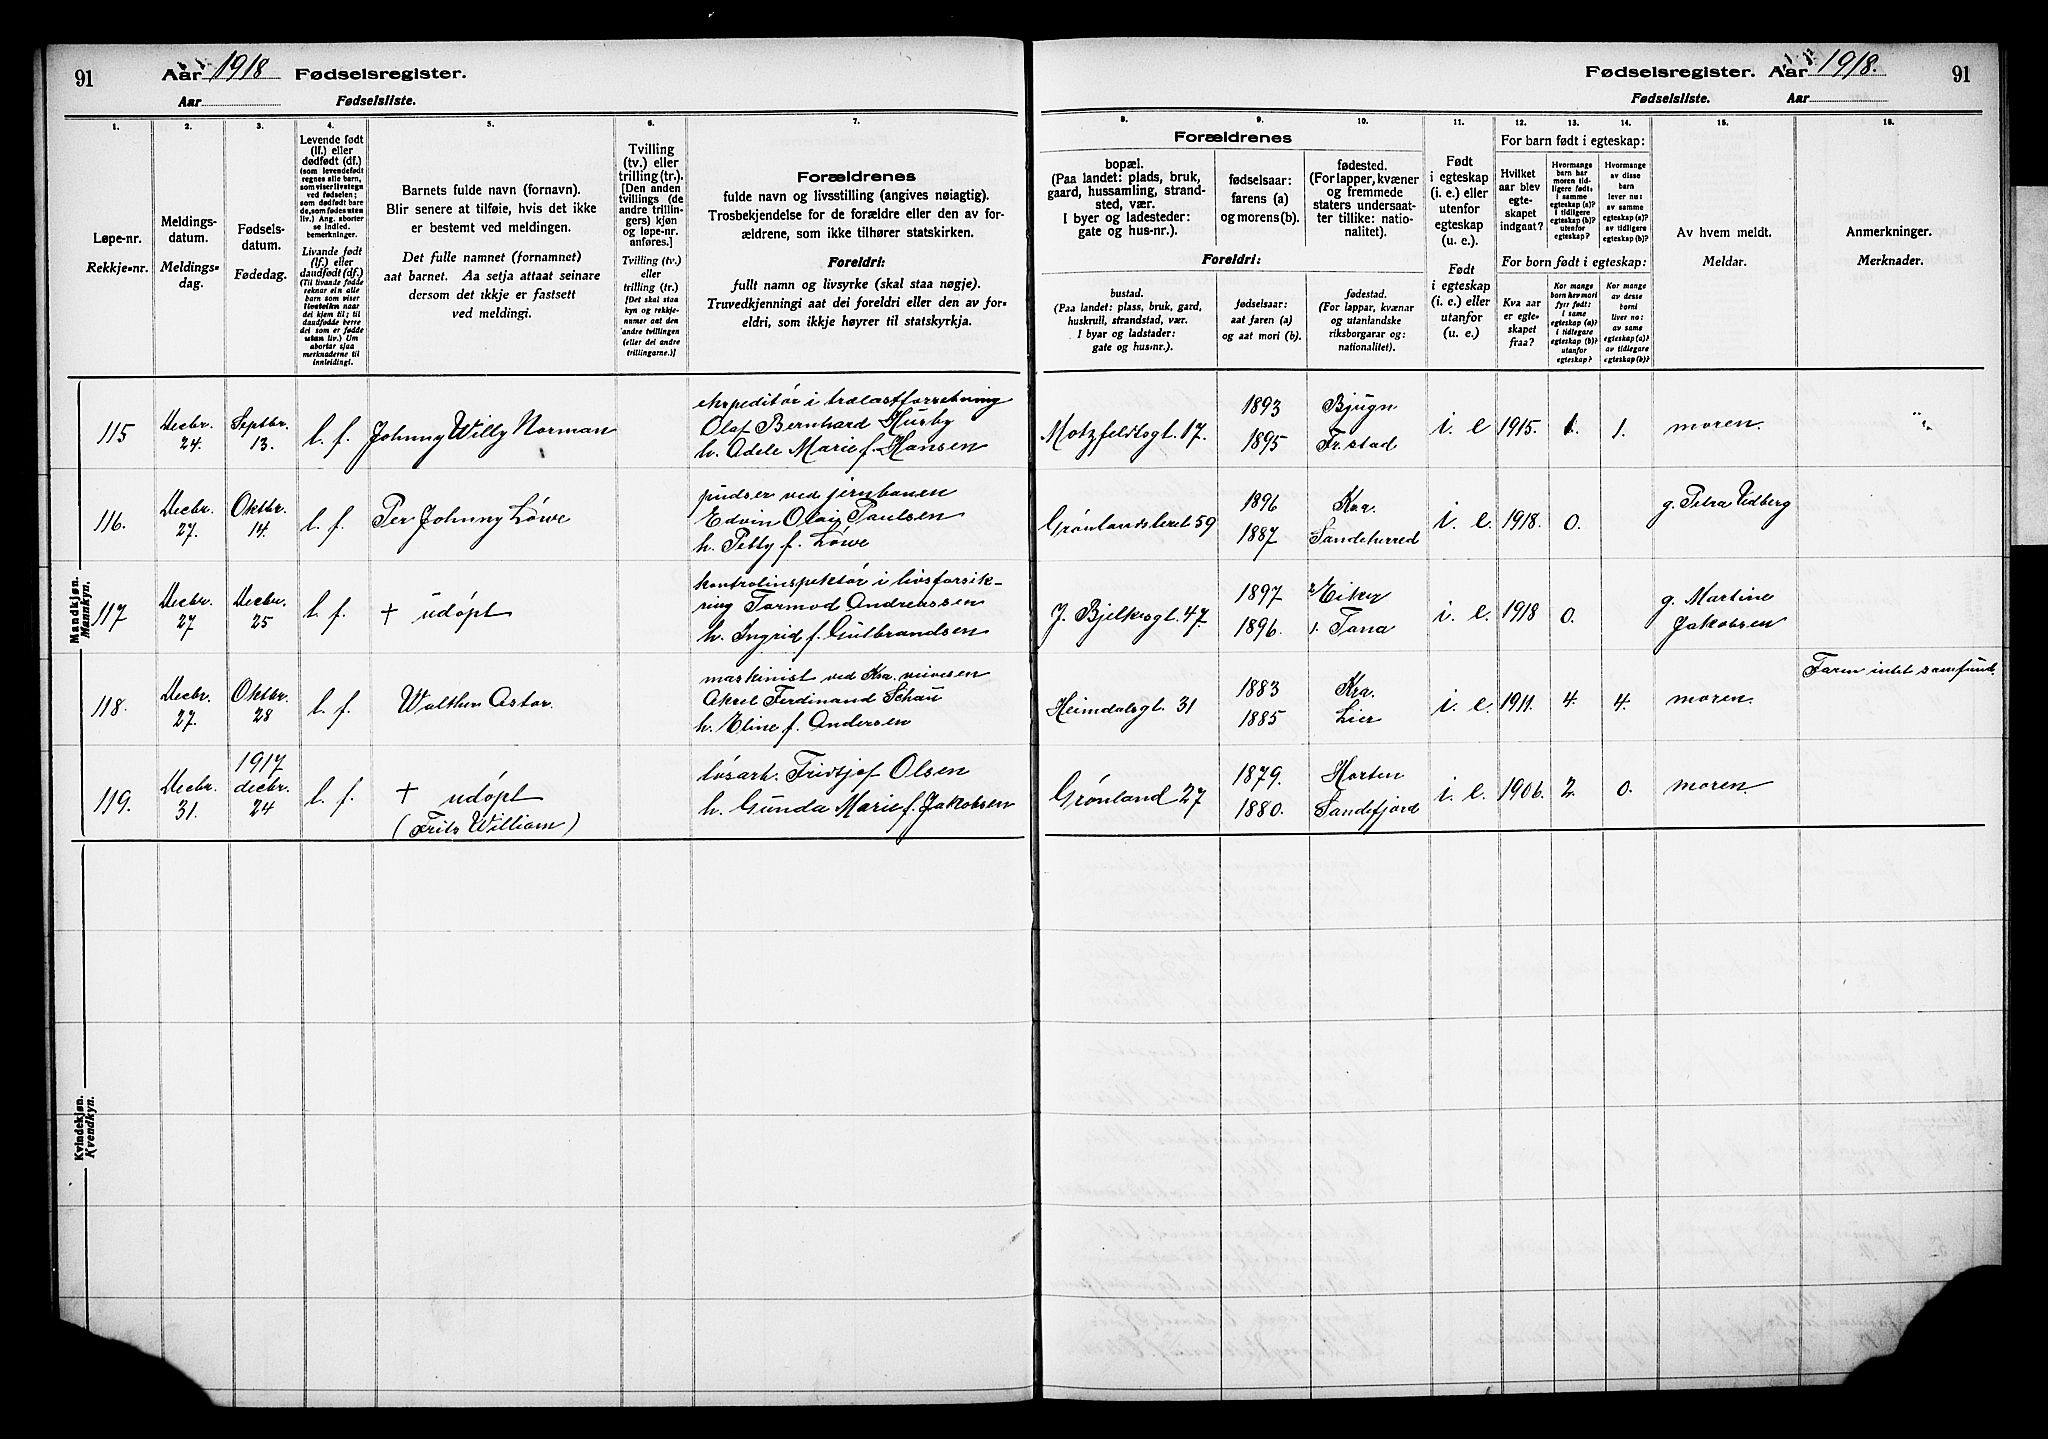 91 Aar 1918 Fødselsregister.
Aar Fødselsliste.
Fødselsregister. Aar 1918. 91
Fødselsliste. Aar
1. 2. 3. 4. 5. 6. 7.
Løpe-nr.
Rekkje-nr.
Meldings-
datum.
Meldings-
dag.
Fødsels-
datum.
Fødedag.
Levende født
(lf.) eller
dødfødt (df.)
(som levendefødt
regnes alle barn,
som viser livstegn
ved fødselen;
som dødfødt bare
de, som fødes uten
liv.) Ang. aborter
se indled.
bemerkninger.
Livande født
(lf.) eller
daudfødt (df.)
(Til livande fødde
reknar ein alle
barn som viser
livsteikn naar
dei kjem til; til
daudfødde berre
dei som er fødde
utan liv.) Um
abortar sjaa
merknaderne til
innleidingi.
Barnets fulde navn (fornavn).
Blir senere at tilføie, hvis det ikke
er bestemt ved meldingen.
Det fulle namnet (fornamnet)
aat barnet. Aa setja attaat seinare
dersom det ikkje er fastsett
ved meldingi.
Tvilling
(tv.) eller
trilling (tr.).
[Den anden
tvillings (de
andre trillin-
gers) kjøn
og løpe-nr.
anføres.]
Tvilling (tv.)
eller
trilling (tr.)
[Det skal staa
kyn og rekkje-
numer aat den
andre tvillingen
(eller dei andre
trillingarne.)]
Forældrenes
fulde navn og livsstilling (angives nøiagtig).
Trosbekjendelse for de forældre eller den av for-
ældrene, som ikke tilhører statskirken.
Foreldri:
fullt namn og livsyrke (skal staa nøgje).
Truvedkjenningi aat dei foreldri eller den av for-
eldri, som ikkje høyrer til statskyrkja.
8. 9. 10. 11. 12. 13. 14. 15. 16.
Forældrenes
bopæl.
(Paa landet: plads, bruk,
gaard, hussamling, strand-
sted, vær.
I byer og ladesteder:
gate og hus-nr.).
fødselsaar:
farens (a)
og morens (b).
fødested.
(For lapper, kvæner
og fremmede
staters undersaat-
ter tillike: natio-
nalitet).
Foreldri:
bustad.
(Paa landet: plass, bruk, gard,
huskrull, strandstad, vær.
I byar og ladstader:
gate og hus-nr.).
fødselsaar:
aat faren (a)
og aat mori (b).
fødestad.
(For lappar, kvænar
og utanlandske
riksborgarar og:
nationalitet).
Født
i egteskap
(i. e.) eller
utenfor
egteskap
(u. e.).
Født
i egteskap
(i. e.) eller
utanfor
(u. e.)
For barn født i egteskap:
Hvilket
aar blev
egte-
skapet
indgaat?
Hvormange
barn har
moren tid-
ligere født:
i samme
egteskap (a)?
i tidligere
egteskap (b)?
utenfor
egteskap?
Hvormange
av disse
barn
lever nu:
av samme
egteskap (a)?
av tidligere
egteskap (b)?
For born født i egteskap:
Kva aar
er egte-
skapet
fraa?
Kor mange
born hev mori
fyrr født:
i same
egteskap (a)?
i tidlegare
egteskap (b)?
utanfor
egteskap?
Kor mange
av desse
borni
liver no:
av same
egteskap (a)?
av tidlegare
egteskap (b)?
Av hvem meldt.
Meldar.
Anmerkninger.
Merknader.
Mandkjøn.
Mannkyn.
115 Decbr. 24. Septbr. 13. l. f. Johnny Willy Norman
ekspeditør i trælastforretning
Olaf Bernhard Husby
h. Adele Marie f. Hansen
Motzfeldtsgt. 17. 1893 Bjugn
1895 Fr.stad
i. e 1915. 1. 1. moren.
116. Decbr. 27. Oktbr. 14. l. f. Per Johnny Löwe
pudser ved jernbanen
Edvin Olai Paulsen
h. Petty f. Löwe
Grønlandsleret 59 1896 Kra.
1887 Sandeherred
i. e. 1918. 0. g. Petra Vedberg
117 Decbr. 27 Decbr. 25 l. f. + udøpt
kontrolinspektør i livsforsik-
ring Tormod Andreassen
h. Ingrid f. Gulbrandsen
J. Bjelkesgt. 47. 1897 Eiker
1896. Tana
i. e. 1918 0. g. Martine
Jakobsen
118. Decbr. 27. Oktbr. 28 l. f. Walther Astor.
maskinist ved Kra.
Aksel Ferdinand Schau
h. Eline f. Andersen
Heimdalsgt. 31 1883 Kra.
1885 Lier
i. e. 1911. 4. 4. moren.
Faren intet samfund.
119. Decbr. 31. 1917 decbr. 24 l. f. + udøpt
(Frits William)
løsarb. Fridtjof Olsen
h. Gunda Marie f. Jakobsen
Grønland 27 1879. Horten
1880. Sandefjord
i. e. 1906. 2. 0. moren.
Kvindekjøn.
Kvendkyn.